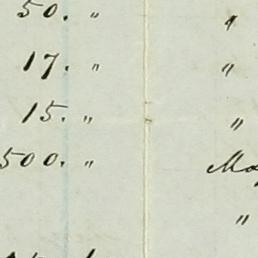 50. " "
17. " "
15. " "
500. "
"